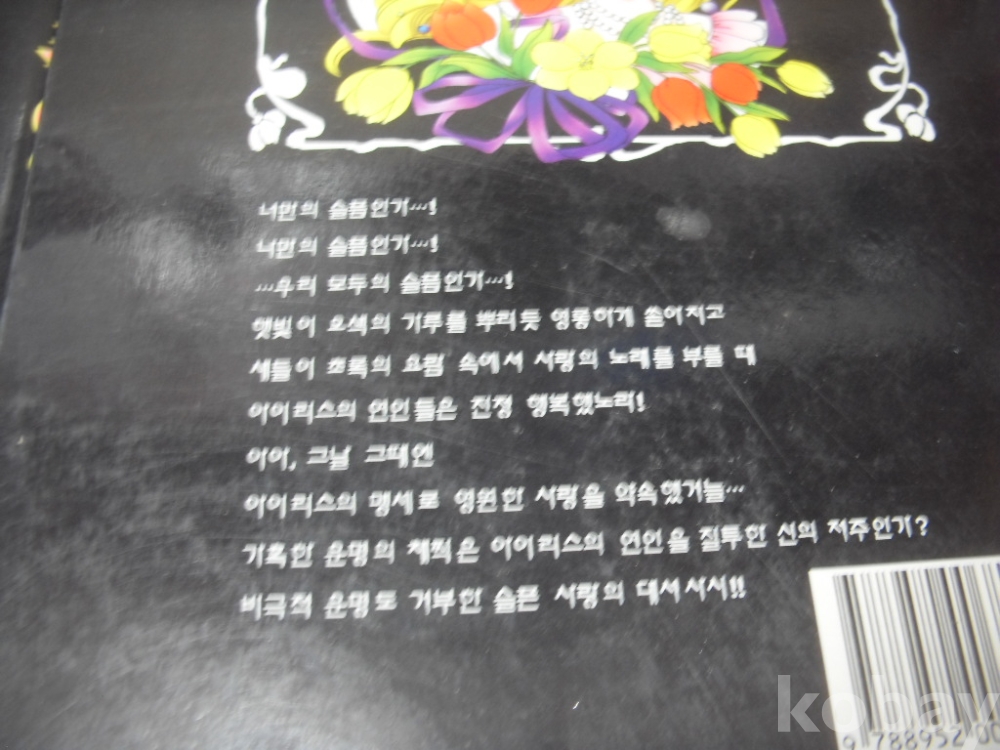 너만의 슬픔인가…!
나만의 슬픔인가…!
…우리 모두의 슬픔인가…!
햇빛이 오색의 가루를 뿌리듯 영롱하게 쏟아지고
새들이 초록의 요람 속에서 사랑의 노래를 부를 때
아이리스의 연인들은 진정 행복했노라!
아아, 그날 그때엔
아이리스의 맹세로 영원한 사랑을 약속했거늘…
가혹한 운명의 채찍은 아이리스의 연인을 질투한 신의 저주인가?
비극적 운명도 거부한 슬픈 사랑의 대서사시!!
kobay
9 788952 00